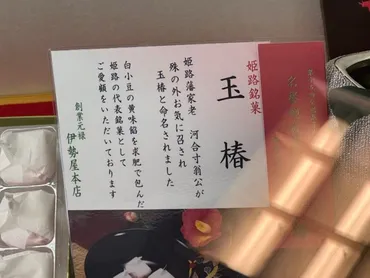 姫路銘菓
玉椿
姫路藩家老 河合寸翁公が
殊の外お気に召され
玉椿と命名されました
白小豆の黄味餡を求肥で包んだ
姫路の代表銘菓として
ご愛顧をいただいております
創業元禄
伊勢屋本店